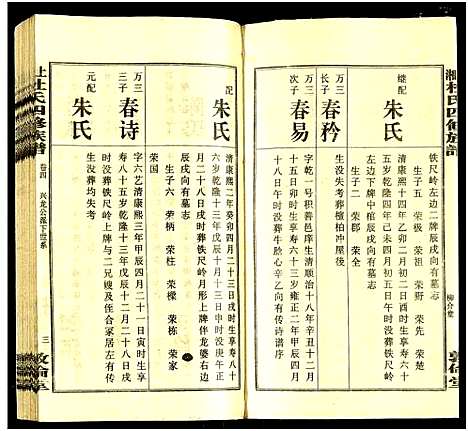 湘杜氏四修族谱
柳介集
敦伦堂
铁尺岭左边二牌辰戌向有墓志
生子五 荣极 荣祖 荣野 荣先 荣楚
继配 朱氏
清康熙四年乙卯二月初二日酉时生享寿六十
五岁乾隆四年己未四月初五日午时葬铁尺岭
左边下牌中棺辰戌向有墓志
生子二 荣郡 荣全
万一 长子 春矜
生没失考葬檀柏冲屋后
万一 次子 春易
字乾一号积善邑庠生清顺治十八年辛丑十二月
十五日卯时生享寿六十三岁雍正二年
十八日午时没葬牛胁心辛乙向有传诗谱序
配 朱氏
清康熙二年癸卯四月二十三日戌时生享寿八十
六岁乾隆十三年戊辰十月十三日子时没
月二十八日戌时葬铁尺岭月形上牌伴龙婆右边
辰戌向有墓志
生子六 荣柄 荣柱 荣樑 荣栋 荣家
荣国
万三 三子 春诗
字六艺清康熙三年甲辰四月二十一日寅时生享
寿八十五岁乾隆十三年戊辰十二月二十八日戌
时没葬铁尺岭上牌与二兄嫂及侄合冢居左有传
元配 朱氏
生没葬均失考
上杜氏四修族谱
卷四 兴龙公派下世系
三
敦伦堂